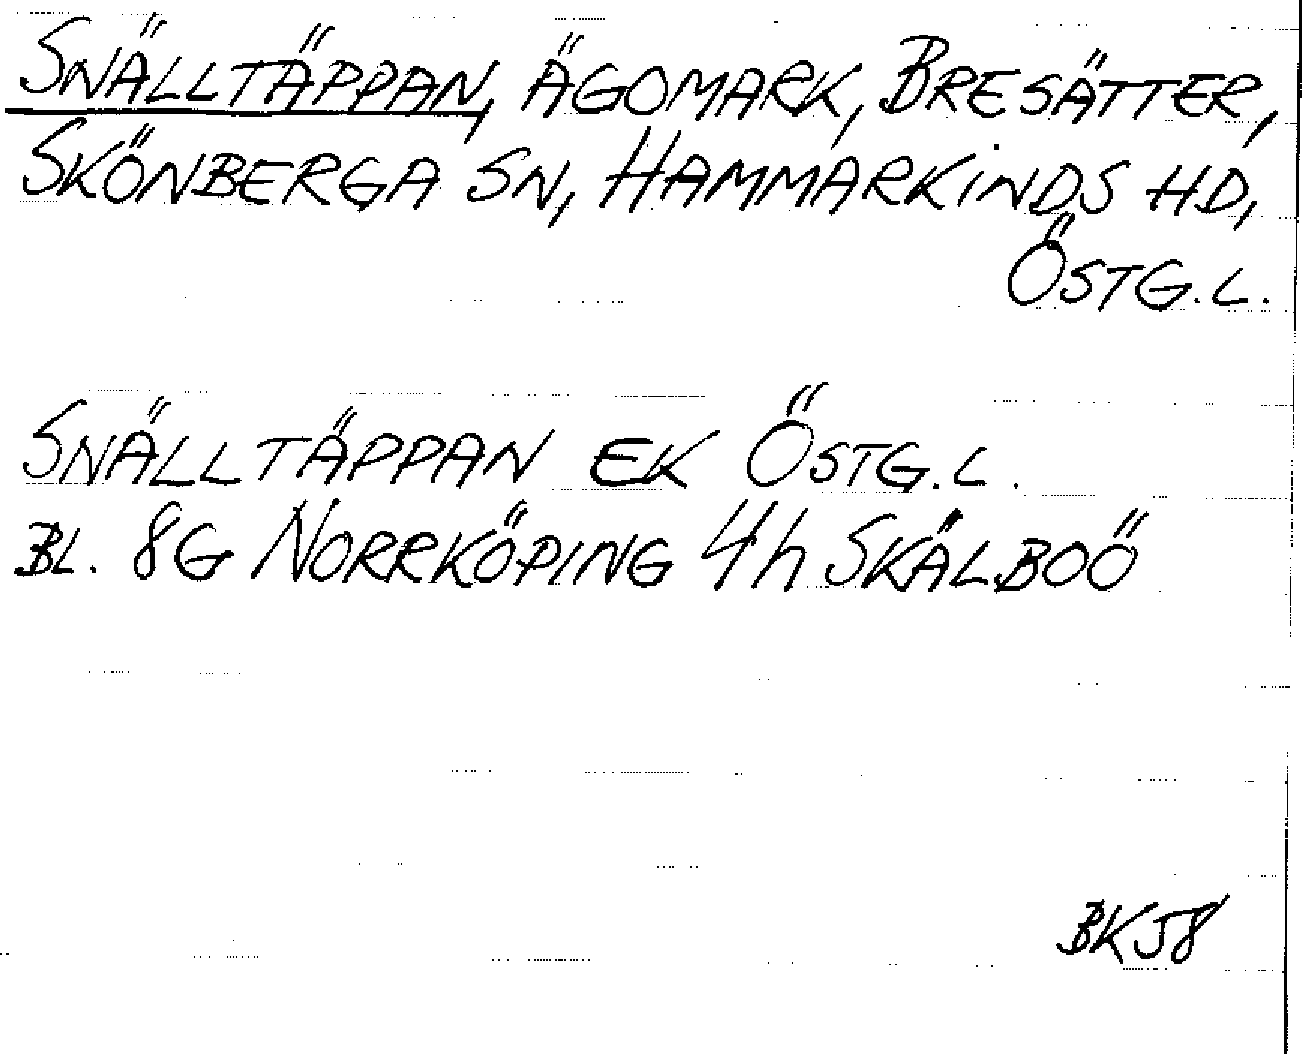 SNÄLLTÄPPAN, ÄGOMARK, BRESÄTTER,
SKÖNBERGA SN, HAMMARKINDS HD,
ÖSTG.L.
SNÄLLTÄPPAN EK ÖSTG.L.
BL. 8G NORRKÖPING 4h SKÄLBOÖ
BKJ8